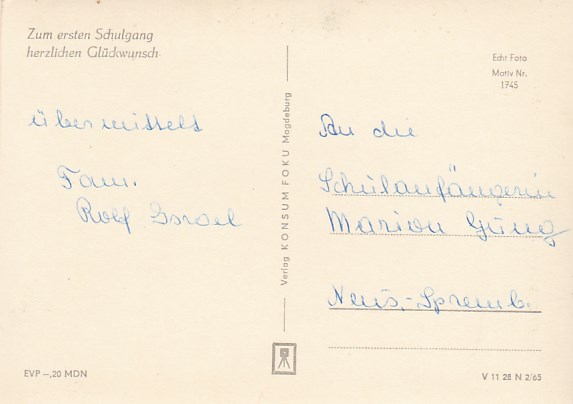 Zum ersten Schulgang
herzlichen Glückwunsch
übermittelt
Fam.
Rolf Israel
Verlag KONSUM FOKU Magdeburg
EVP –,20 MDN
Echt Foto
Motiv Nr.
1745
An die
Schulanfängerin
Marion
Neus.-Spremb.
V 11 28 N 2/65